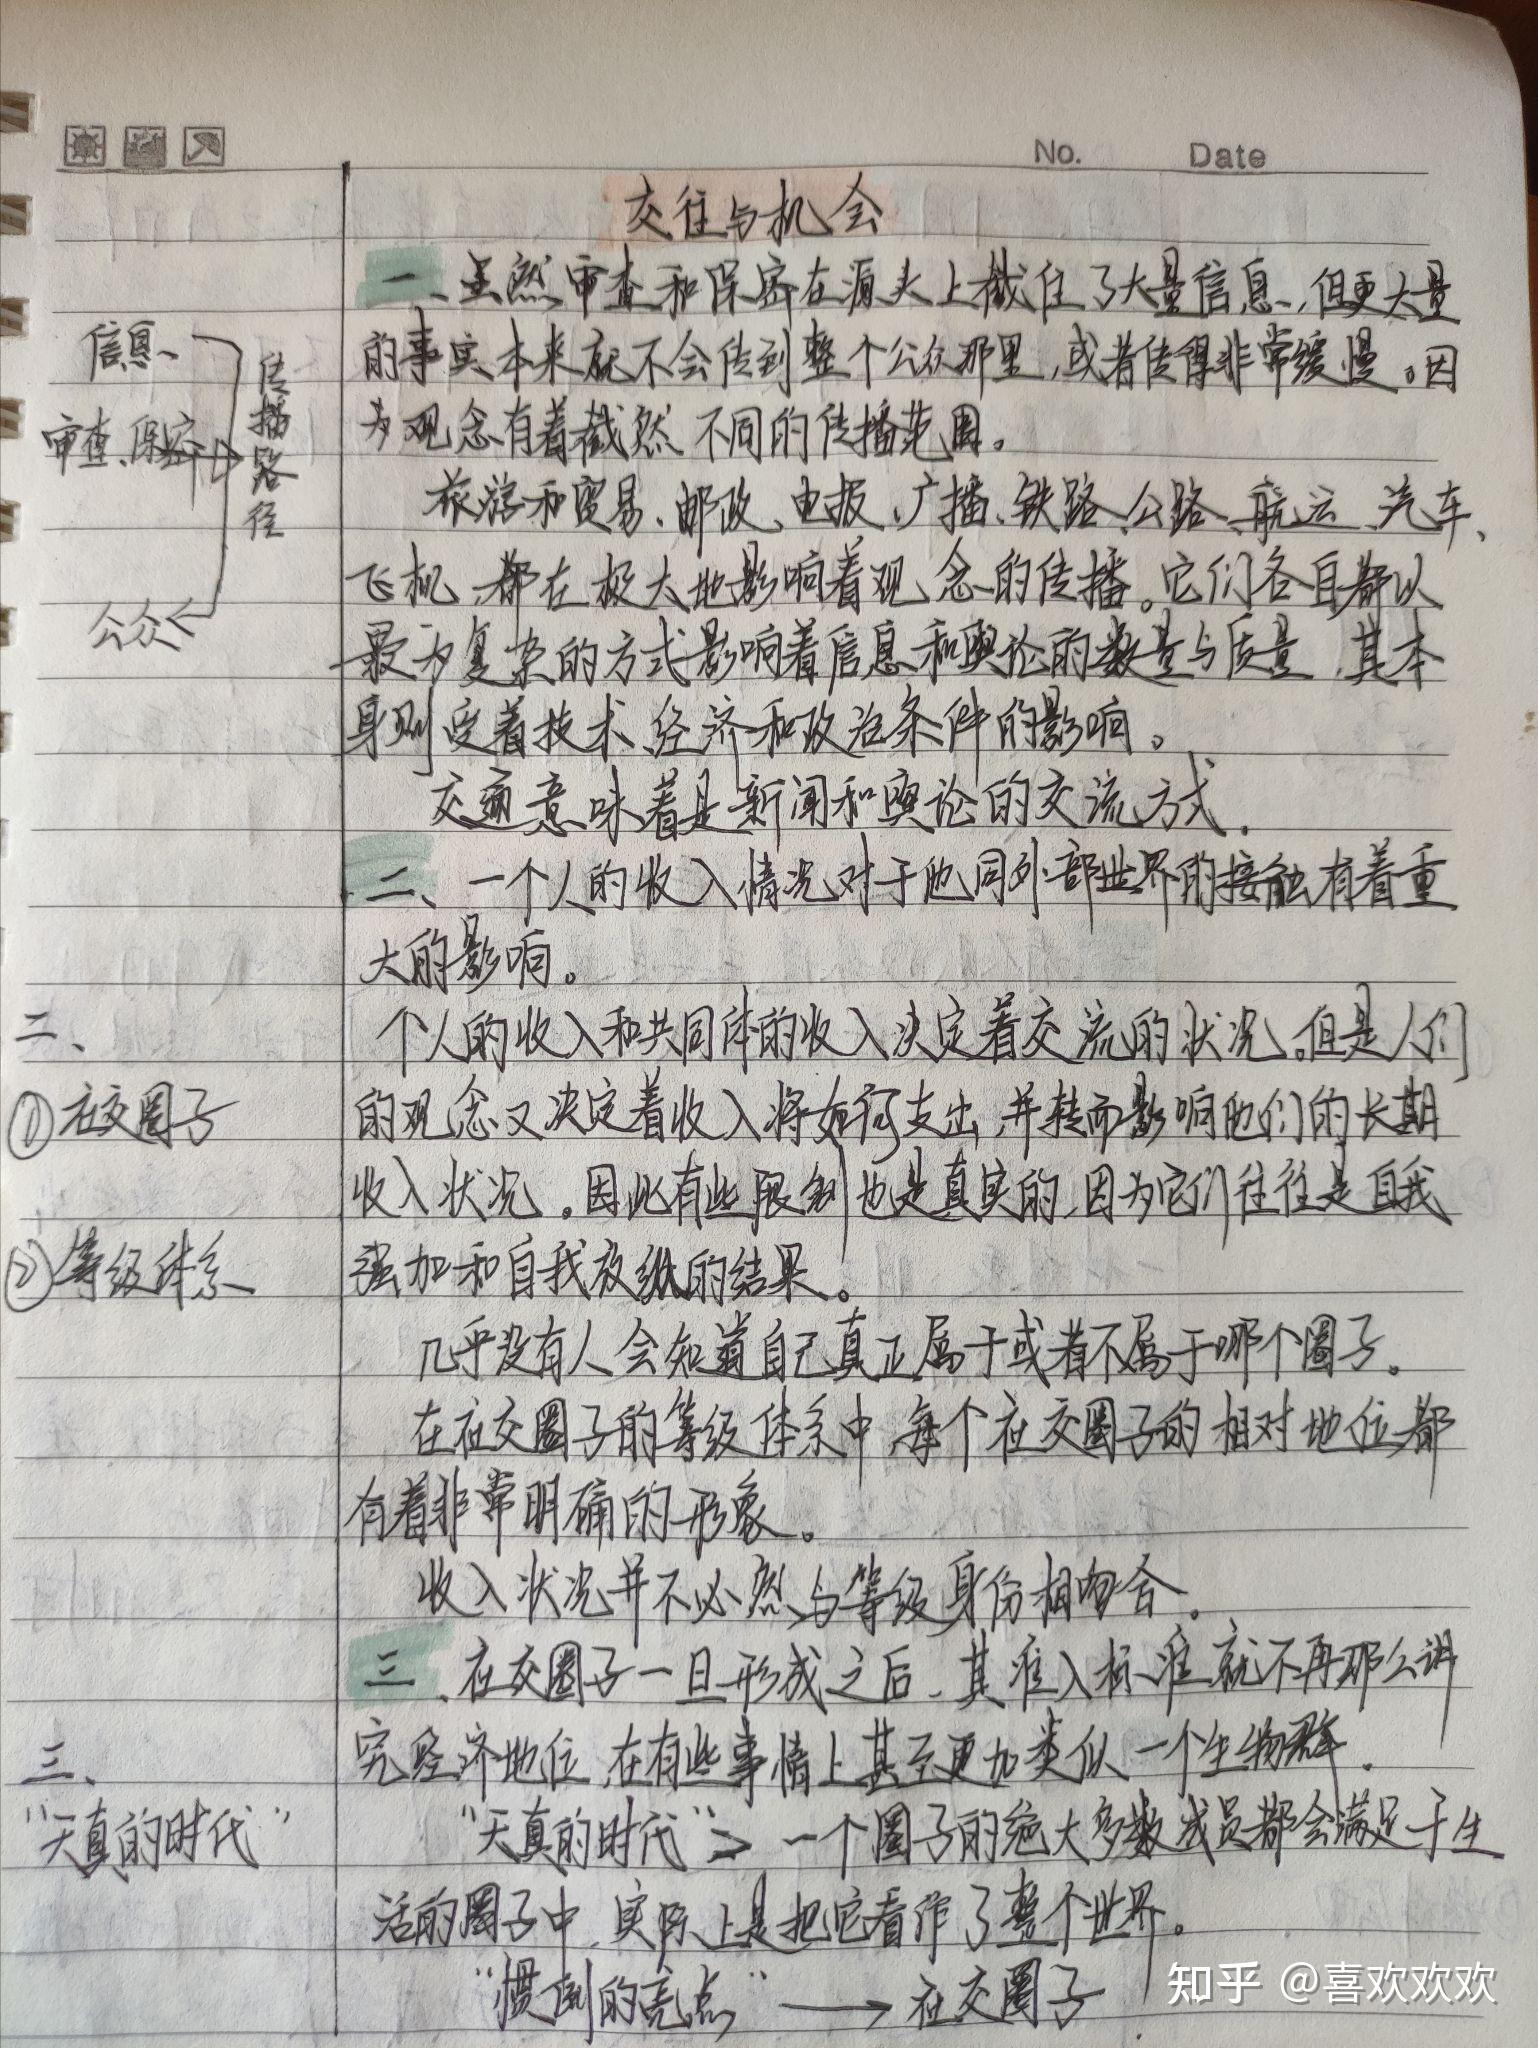 No. Date
交往与机会
一、虽然审查和保密在源头上截住了大量信息、但更大量
的事实本来就不会传到整个公众那里，或者传得非常缓慢。因
为观念有着截然不同的传播范围。
旅游和贸易、邮政、电报、广播、铁路、公路、航运、汽车、
飞机、都在极大地影响着观念的传播。它们各自都以
最为复杂的方式影响着信息和舆论的数量与质量，其本
身则受着技术、经济和政治条件的影响。
交通意味着是新闻和舆论的交流方式.
二、一个人的收入情况对于他同外部世界的接触有着重
大的影响。
个人的收入和共同体的收入决定着交流的状况。但是人们
的观念又决定着收入将如何支出，并转而影响他们的长期
收入状况。因此有些限制也是真实的，因为它们往往是自我
强加和自我放纵的结果。
几乎没有人会知道自己真正属于或者不属于哪个圈子。
在社交圈子的等级体系中，每个社交圈子的相对地位都
有着非常明确的形象。
收入状况并不必然与等级身份相吻合.
三、社交圈子一旦形成之后、其准入标准就不再那么讲
究经济地位，在有些事情上甚至更加类似一个生物群.
“天真的时代”=> 一个圈子的绝大多数成员都会满足于生
活的圈子中，实际上是把它看作了整个世界。
“惯例的亮点” → 社交圈子
信息、
审查、保密
传播路径
公众
二、
①社交圈子
②等级体系
三、
“天真的时代”
知乎 @喜欢欢欢